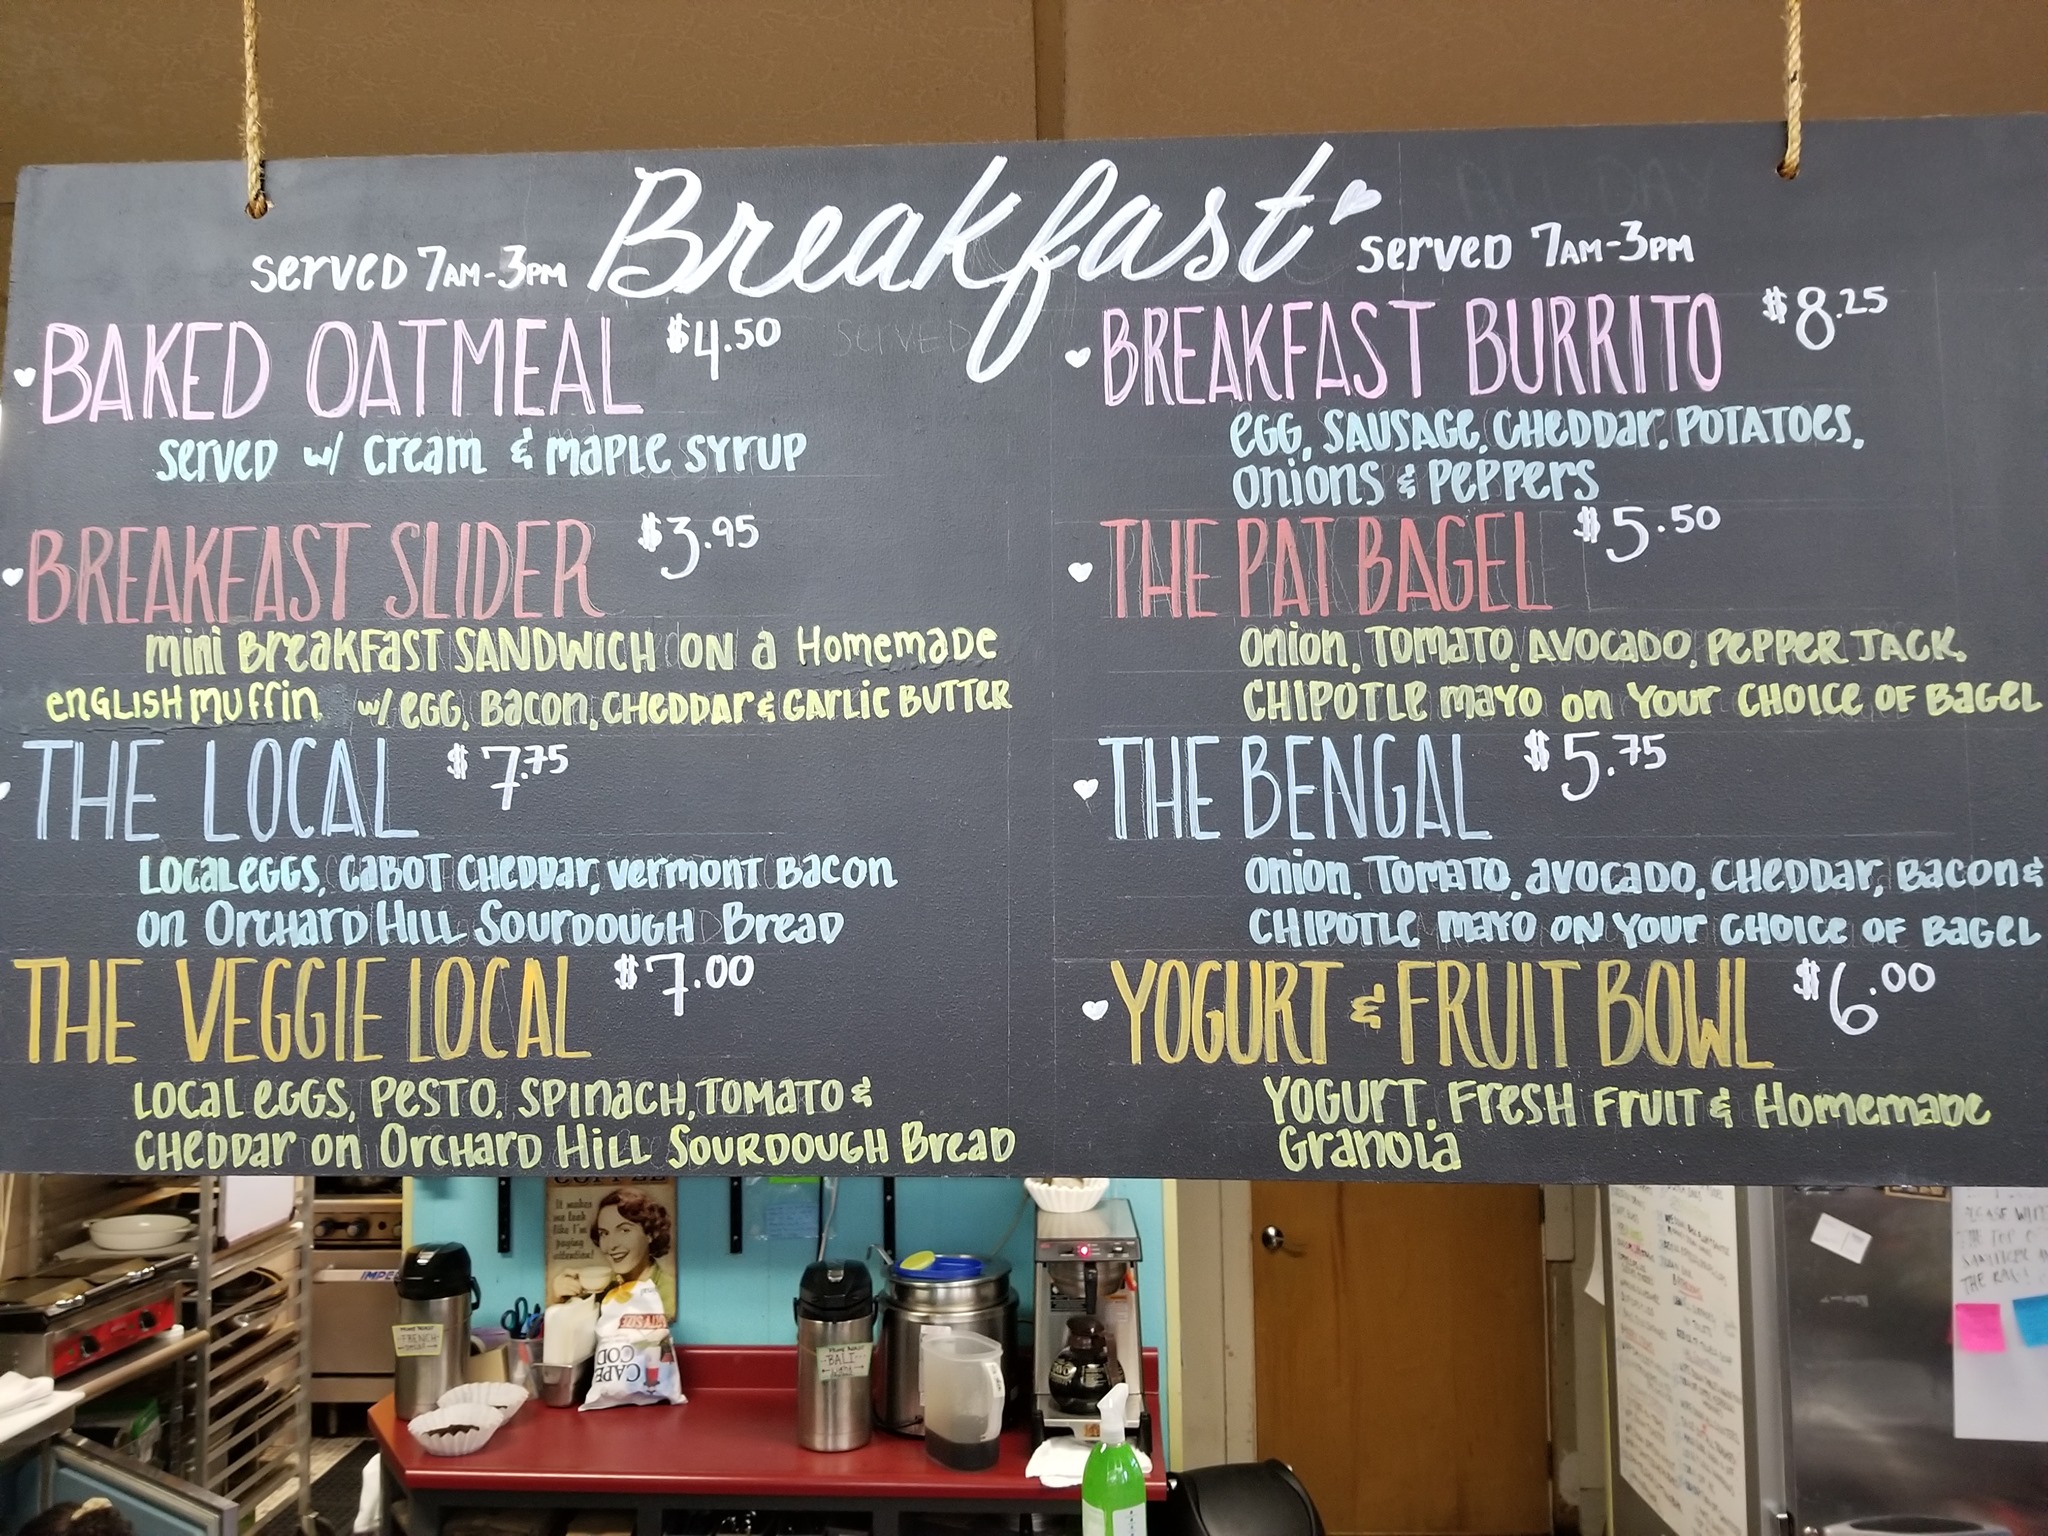 Breakfast
served 7AM-3PM
served 7AM-3PM
BAKED OATMEAL $4.50
served w/ cream & maple syrup
BREAKFAST SLIDER $3.95
mini Breakfast Sandwich on a Homemade
English muffin w/ egg, Bacon, Cheddar & Garlic Butter
THE LOCAL $7.75
Local eggs, Cabot Cheddar, Vermont Bacon
on Orchard Hill Sourdough Bread
THE VEGGIE LOCAL $7.00
Local eggs, Pesto, Spinach, Tomato &
Cheddar on Orchard Hill Sourdough Bread
BREAKFAST BURRITO $8.25
egg, Sausage, Cheddar, Potatoes,
Onions & Peppers
THE PAT BAGEL $5.50
Onion, Tomato, Avocado, Pepper Jack,
Chipotle mayo on Your Choice of Bagel
THE BENGAL $5.75
Onion, Tomato, avocado, Cheddar, Bacon &
Chipotle mayo on Your Choice of Bagel
YOGURT & FRUIT BOWL $6.00
Yogurt, Fresh Fruit & Homemade
Granola
SERVED
It makes
me look
like I'm
paying
attention!
IMPE
FRENCH
BALI
CAPE
COD